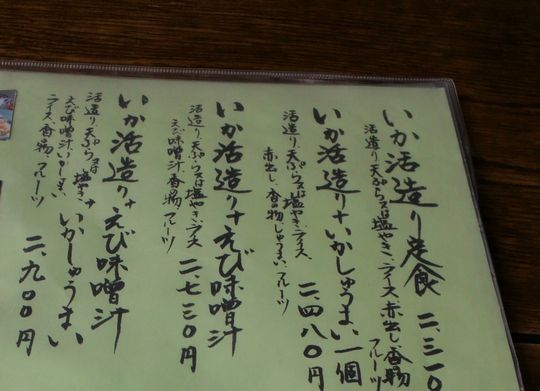 いか活造り定食 二、三一〇
活造り、天ぷら又は塩やき、ライス、赤出し、香の物、
フルーツ
いか活造り+いかしゅうまい一個
二、四八〇円
活造り、天ぷら又は塩やき、ライス、
赤出し、香の物、しゅうまい、フルーツ
いか活造り+えび味噌汁
二、七三〇円
活造り、天ぷら又は塩やき、ライス
えび味噌汁、香の物、フルーツ
いか活造り+えび味噌汁
+いかしゅうまい
二、九〇〇円
活造り、天ぷら又は塩やき、
えび味噌汁、いかしゅうまい、
ライス、香の物、フルーツ